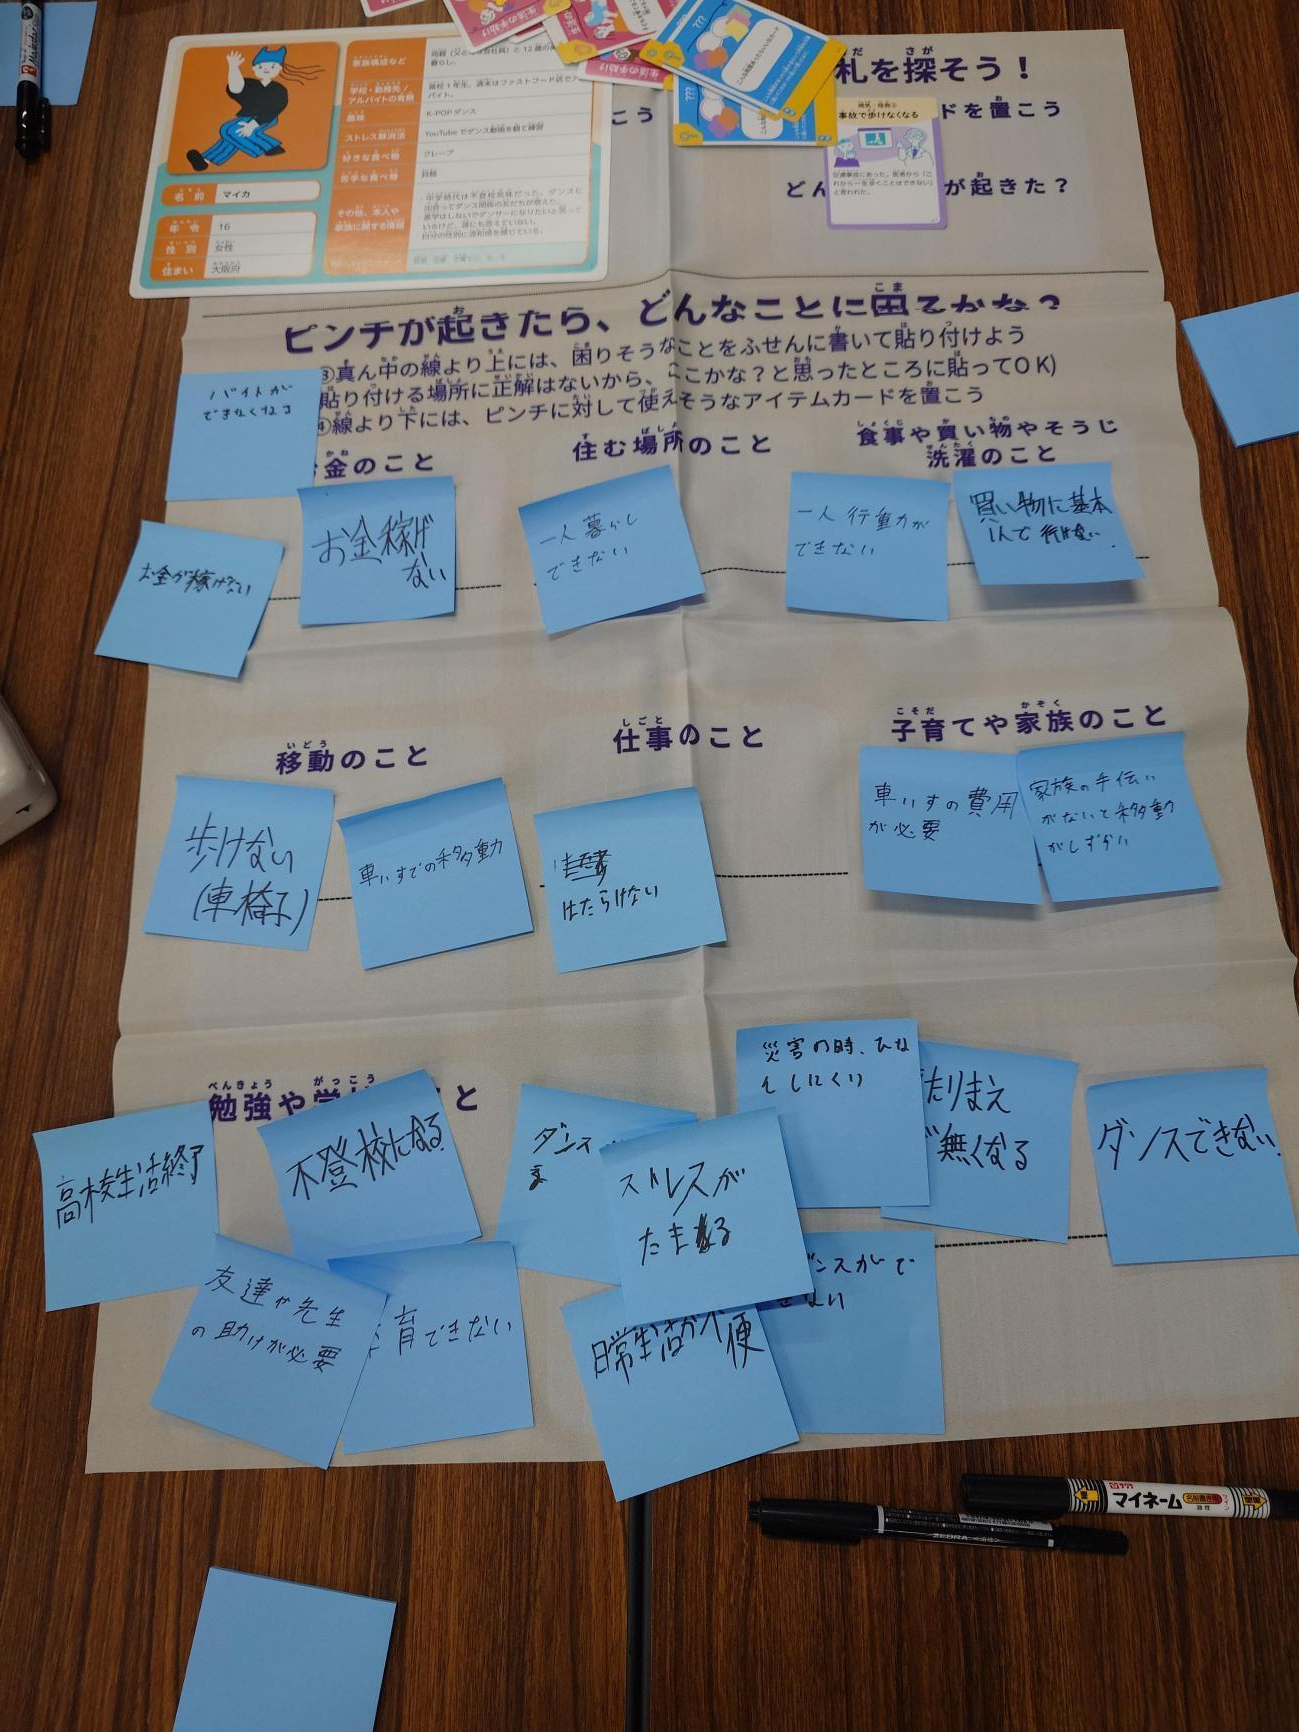 札を探そう！
ドを置こう
こう
どん
が起きた？
事故で歩けなくなる
交通事故にあった。医者から「こ
れから一生歩くことはできない」
と言われた。
生活の手助け
生活の手助け
???
???
家族構成など
学校・勤務先/
アルバイトの有無
高校1年生。週末はファストフード店でア
バイト。
趣味
K-POPダンス
ストレス解消法
YouTubeでダンス動画を観て練習
好きな食べ物
クレープ
苦手な食べ物
その他、本人や
家族に関する情報
名前
マイカ
年令
16
性別
女性
住まい
大阪府
ピンチが起きたら、どんなことに困るかな？
③真ん中の線より上には、困りそうなことをふせんに書いて貼り付けよう
貼り付ける場所に正解はないから、ここかな？と思ったところに貼ってOK)
④線より下には、ピンチに対して使えそうなアイテムカードを置こう
バイトが
できなくなる
金のこと
お金が稼げない
お金稼げ
ない
住む場所のこと
一人暮らし
できない
食事や買い物やそうじ
洗濯のこと
一人行動が
できない
買い物に基本
1人で行けない
移動のこと
歩けない
(車椅子)
車いすでの移動
仕事のこと
はたらけない
子育てや家族のこと
車いすの費用
が必要
家族の手伝い
がないと移動
がしずらい
勉強や
こと
高校生活終了
不登校になる
友達や先生
の助けが必要
育できない
ダンス
ストレスが
たまる
日常生活が不便
災害の時、ひな
んしにくい
たりまえ
無くなる
ダンスできない
ンスがで
きない
マイネーム
ZEBRA